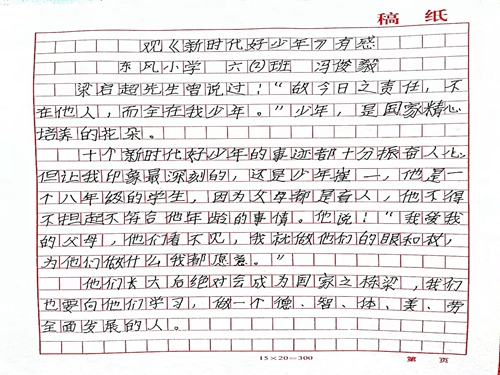 稿 纸
观《新时代好少年》有感
东风小学 六(2)班 冯俊毅
梁启超先生曾说过:“故今日之责任,不
在他人,而全在我少年。”少年,是国家精心
培养的花朵。
十个新时代好少年的事迹都十分振奋人心
但让我印象最深刻的,这是少年崔一,他是一
个八年级的学生,因为父母都是盲人,他不得
不担起不符合他年龄的事情。他说:“我爱我
的父母,他们看不见,我就做他们的眼和杖,
为他们做什么我都愿意。”
他们长大后绝对会成为国家之栋梁,我们
也要向他们学习,做一个德、智、体、美、劳
全面发展的人。
15×20=300 第 页